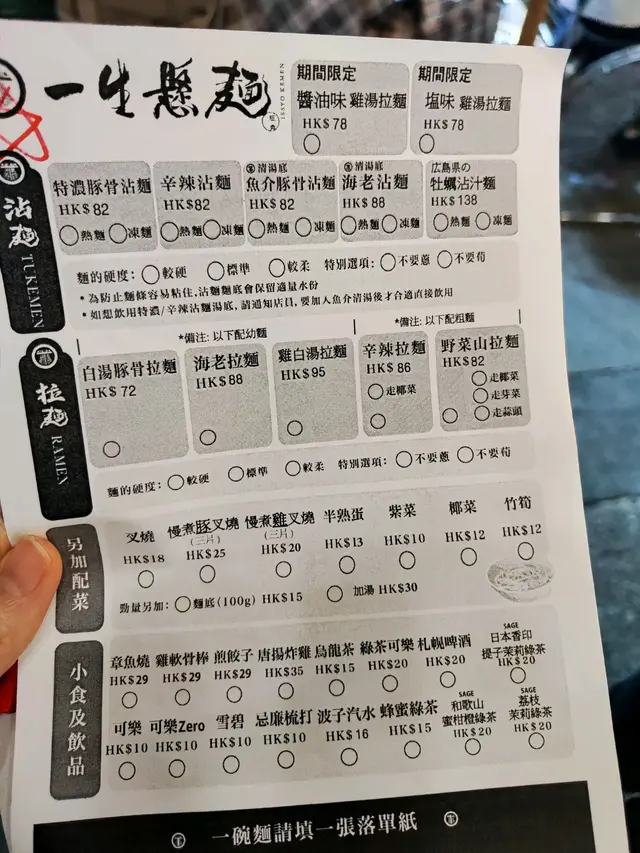 一生懸麵
期間限定
醬油味 雞湯拉麵
HK$ 78
期間限定
塩味 雞湯拉麵
HK$ 78
沾麵 TUKEMEN
特濃豚骨沾麵
HK$ 82
熱麵 凍麵
辛辣沾麵
HK$82
熱麵 凍麵
清湯底
魚介豚骨沾麵
HK$ 82
熱麵 凍麵
清湯底
海老沾麵
HK$ 88
熱麵 凍麵
広島県の
牡蠣沾汁麵
HK$ 138
熱麵 凍麵
麵的硬度: 較硬 標準 較柔 特別選項: 不要蔥 不要筍
* 為防止麵條容易粘住,沾麵麵底會保留適量水份
* 如想飲用特濃/辛辣沾麵湯底, 請通知店員, 要加入魚介清湯後才合適直接飲用
拉麵 RAMEN
*備注: 以下配幼麵
*備注: 以下配粗麵
白湯豚骨拉麵
HK$ 72
海老拉麵
HK$ 88
雞白湯拉麵
HK$ 95
辛辣拉麵
HK$ 86
走椰菜
野菜山拉麵
HK$82
走椰菜
走芽菜
走蒜頭
麵的硬度: 較硬 標準 較柔 特別選項: 不要蔥 不要筍
另加配菜
叉燒
HK$18
慢煮豚叉燒
(三片)
HK$ 25
慢煮雞叉燒
(三片)
HK$ 20
半熟蛋
HK$13
紫菜
HK$10
椰菜
HK$12
竹筍
HK$12
勁量另加: 麵底 (100g) HK$15 加湯 HK$30
小食及飲品
章魚燒
HK$29
雞軟骨棒
HK$29
煎餃子
HK$29
唐揚炸雞
HK$35
烏龍茶
HK$15
綠茶可樂
HK$20
札幌啤酒
HK$20
SAGE
日本香印
提子茉莉綠茶
HK$ 20
可樂
HK$10
可樂Zero
HK$10
雪碧
HK$10
忌廉梳打
HK$10
波子汽水
HK$ 16
蜂蜜綠茶
HK$15
SAGE
和歌山
蜜柑橙綠茶
HK$ 20
SAGE
荔枝
茉莉綠茶
HK$ 20
一碗麵請填一張落單紙